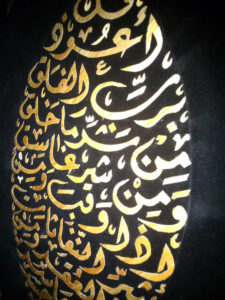 قل
أعوذ
برب الفلق
من شر ما خلق
ومن شر غاسق
اذا وقب ومن
شر النفاثات